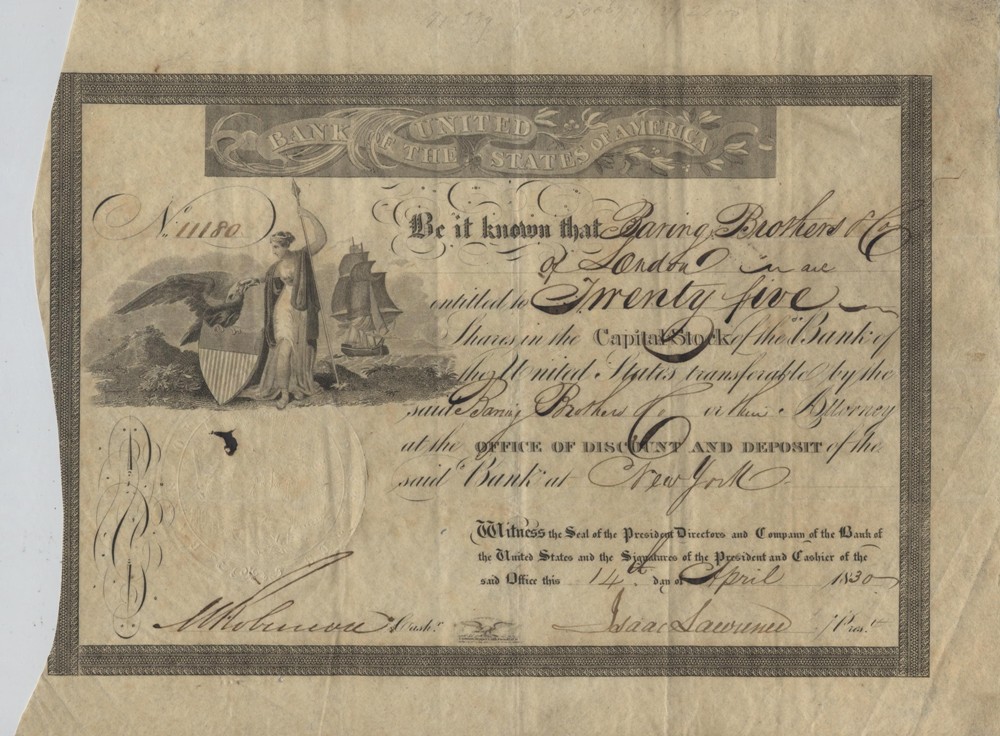 BANK OF THE UNITED STATES OF AMERICA
No. 11180
Be it known that Baring Brothers & Co
of London are
entitled to Twenty five
Shares in the Capital Stock of the Bank of
the United States transferable by the
said Baring Brothers & Co or their Attorney
at the OFFICE OF DISCOUNT AND DEPOSIT of the
said Bank at New York
Witness the Seal of the President Directors and Company of the Bank of
the United States and the Signatures of the President and Cashier of the
said Office this 14th day of April 1830
M Robinson Cashr. Isaac Lawrence Prest.